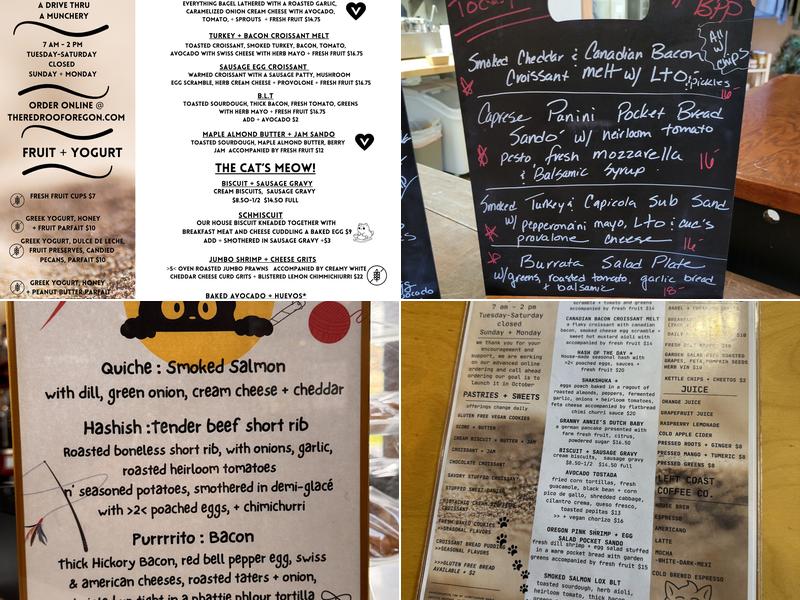 A DRIVE THRU
A MUNCHERY
7 AM - 2 PM
TUESDAY-SATURDAY
CLOSED
SUNDAY + MONDAY
ORDER ONLINE @
THEREDROOFOREGON.COM
FRUIT + YOGURT
FRESH FRUIT CUPS $7
GREEK YOGURT, HONEY
+ FRUIT PARFAIT $10
GREEK YOGURT, DULCE DE LECHE,
FRUIT PRESERVES, CANDIED
PECANS, PARFAIT $10
GREEK YOGURT, HONEY
+ PEANUT BUTTER PARFAIT
EVERYTHING BAGEL LATHERED WITH A ROASTED GARLIC,
CARAMELIZED ONION CREAM CHEESE WITH AVOCADO,
TOMATO, + SPROUTS + FRESH FRUIT $14.75
TURKEY + BACON CROISSANT MELT
TOASTED CROISSANT, SMOKED TURKEY, BACON, TOMATO,
AVOCADO WITH SWISS CHEESE WITH HERB MAYO + FRESH FRUIT $16.75
SAUSAGE EGG CROISSANT
WARMED CROISSANT WITH A SAUSAGE PATTY, MUSHROOM
EGG SCRAMBLE, HERB CREAM CHEESE + PROVOLONE + FRESH FRUIT $16.75
B.L.T
TOASTED SOURDOUGH, THICK BACON, FRESH TOMATO, GREENS
WITH HERB MAYO + FRESH FRUIT $16.75
ADD + AVOCADO $2
MAPLE ALMOND BUTTER + JAM SANDO
TOASTED SOURDOUGH, MAPLE ALMOND BUTTER, BERRY
JAM ACCOMPANIED BY FRESH FRUIT $12
THE CAT'S MEOW!
BISCUIT + SAUSAGE GRAVY
CREAM BISCUITS, SAUSAGE GRAVY
$8.50-1/2 $14.50 FULL
SCHMISCUIT
OUR HOUSE BISCUIT KNEADED TOGETHER WITH
BREAKFAST MEAT AND CHEESE CUDDLING A BAKED EGG $9
ADD + SMOTHERED IN SAUSAGE GRAVY +$3
JUMBO SHRIMP + CHEESE GRITS
>5< OVEN ROASTED JUMBO PRAWNS ACCOMPANIED BY CREAMY WHITE
CHEDDAR CHEESE CURD GRITS + BLISTERED LEMON CHIMMICHURRI $22
BAKED AVOCADO + HUEVOS*
BPP
All w/ chips
Smoked Cheddar & Canadian Bacon
Croissant melt w/ LTO, pickles
16-
Caprese Panini Pocket Bread
Sando w/ heirloom tomato
pesto, fresh mozzarella
& Balsamic Syrup
16-
Smoked Turkey & Capicola Sub Sand
w/ pepperoncini mayo, LTO & cuc's
provalone cheese 16-
Burrata Salad Plate
w/ greens, roasted tomato, garlic bread
+ balsamic 18-
Quiche : Smoked Salmon
with dill, green onion, cream cheese + cheddar
Hashish :Tender beef short rib
Roasted boneless short rib, with onions, garlic,
roasted heirloom tomatoes
n' seasoned potatoes, smothered in demi-glacé
with >2< poached eggs, + chimichurri
Purrrrito : Bacon
Thick Hickory Bacon, red bell pepper egg, swiss
& american cheeses, roasted taters + onion,
tight in a phattie phlour tortilla
7 am - 2 pm
Tuesday-Saturday
closed
Sunday + Monday
we thank you for your
encouragement and
support, we are working
on our advanced online
ordering and call ahead
ordering our goal is to
launch it in October
PASTRIES + SWEETS
offerings change daily
GLUTEN FREE VEGAN COOKIES
SCONE + BUTTER
CREAM BISCUIT + BUTTER + JAM
CROISSANT + JAM
CHOCOLATE CROISSANT
SAVORY STUFFED CROISSANT
STUFFED SWEET DANISH
PISTACHIO CREAM
CROISSANT
FRESH BAKED COOKIES
>>SEASONAL FLAVORS
CROISSANT BREAD PUDDING
>>SEASONAL FLAVORS
>>>GLUTEN FREE BREAD
AVAILABLE + $2
scramble + tomato and greens
accompanied by fresh fruit $14
CANADIAN BACON CROISSANT MELT
a flaky croissant with canadian
bacon, smoked cheese egg scramble +
sweet hot mustard aioli with
accompanied by fresh fruit $14
HASH OF THE DAY *
house-made seasonal hash with
>2< poached eggs, sauces +
fresh fruit $20
SHAKSHUKA *
eggs poach baked in a ragout of
roasted almonds, peppers, fermented
garlic, onions + heirloom tomatoes,
feta cheese accompanied by flatbread
chimi churri sauce $20
GRANNY ANNIE'S DUTCH BABY
a german pancake presented with
farm fresh fruit, citrus,
powdered sugar $16.50
BISCUIT + SAUSAGE GRAVY
cream biscuits, sausage gravy
$8.50-1/2 $14.50 full
AVOCADO TOSTADA
fried corn tortillas, fresh
guacamole, black bean + corn
pico de gallo, shredded cabbage,
cilantro crema, queso fresco,
toasted pepitas $13
>> + vegan chorizo $16
OREGON PINK SHRIMP + EGG
SALAD POCKET SANDO
fresh dill shrimp + egg salad stuffed
in a warm pocket bread with garden
greens accompanied by fresh fruit
SMOKED SALMON LOX BLT
toasted sourdough, herb aioli,
GARDEN SALAD
KETTLE CHIPS + CHEETOS $2
JUICE
ORANGE JUICE
GRAPEFRUIT JUICE
RASPBERRY LEMONADE
COLD APPLE CIDER
PRESSED ROOTS + GINGER $8
PRESSED MANGO + TUMERIC $8
PRESSED GREENS $8
LEFT COAST
COFFEE CO.
HOUSE BREW
ESPRESSO
AMERICANO
LATTE
MOCHA
-WHITE-DARK-MEXI
COLD BREWED ESPRESSO